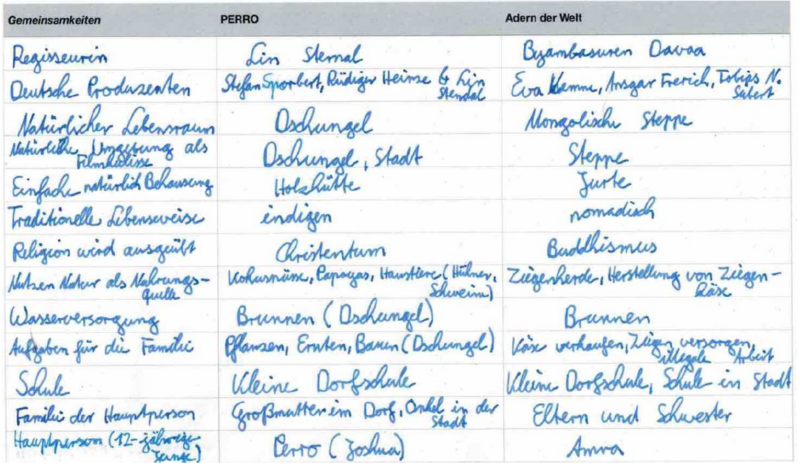 Gemeinsamkeiten PERRO Adern der Welt
Regisseurin Lin Sternal Byambasuren Davaa
Deutsche Produzenten Stefan Sporbert, Rüdiger Heinze & Lin Eva Kemme, Ansgar Frerich, Tobias N.
Sternal Siebert
Natürlicher Lebensraum Dschungel Mongolische Steppe
Natürliche Umgebung als Dschungel, Stadt Steppe
Filmkulisse
Einfache natürlich Behausung Holzhütte Jurte
Traditionelle Lebensweise indigen nomadisch
Religion wird ausgeübt Christentum Buddhismus
Nutzen Natur als Nahrungs- Kokusnüsse, Papayas, Haustiere (Hühner, Ziegenherde, Herstellung von Ziegen-
quelle Schwein) käse
Wasserversorgung Brunnen (Dschungel) Brunnen
Aufgaben für die Familie Pflanzen, Ernten, Bauen (Dschungel) Käse verkaufen, Ziegen versorgen,
illegale Arbeit
Schule Kleine Dorfschule Kleine Dorfschule, Schule in Stadt
Familie der Hauptperson Großmutter im Dorf, Onkel in der Eltern und Schwester
Stadt
Hauptperson (12-jähriger Perro (Joshua) Amra
Junge)